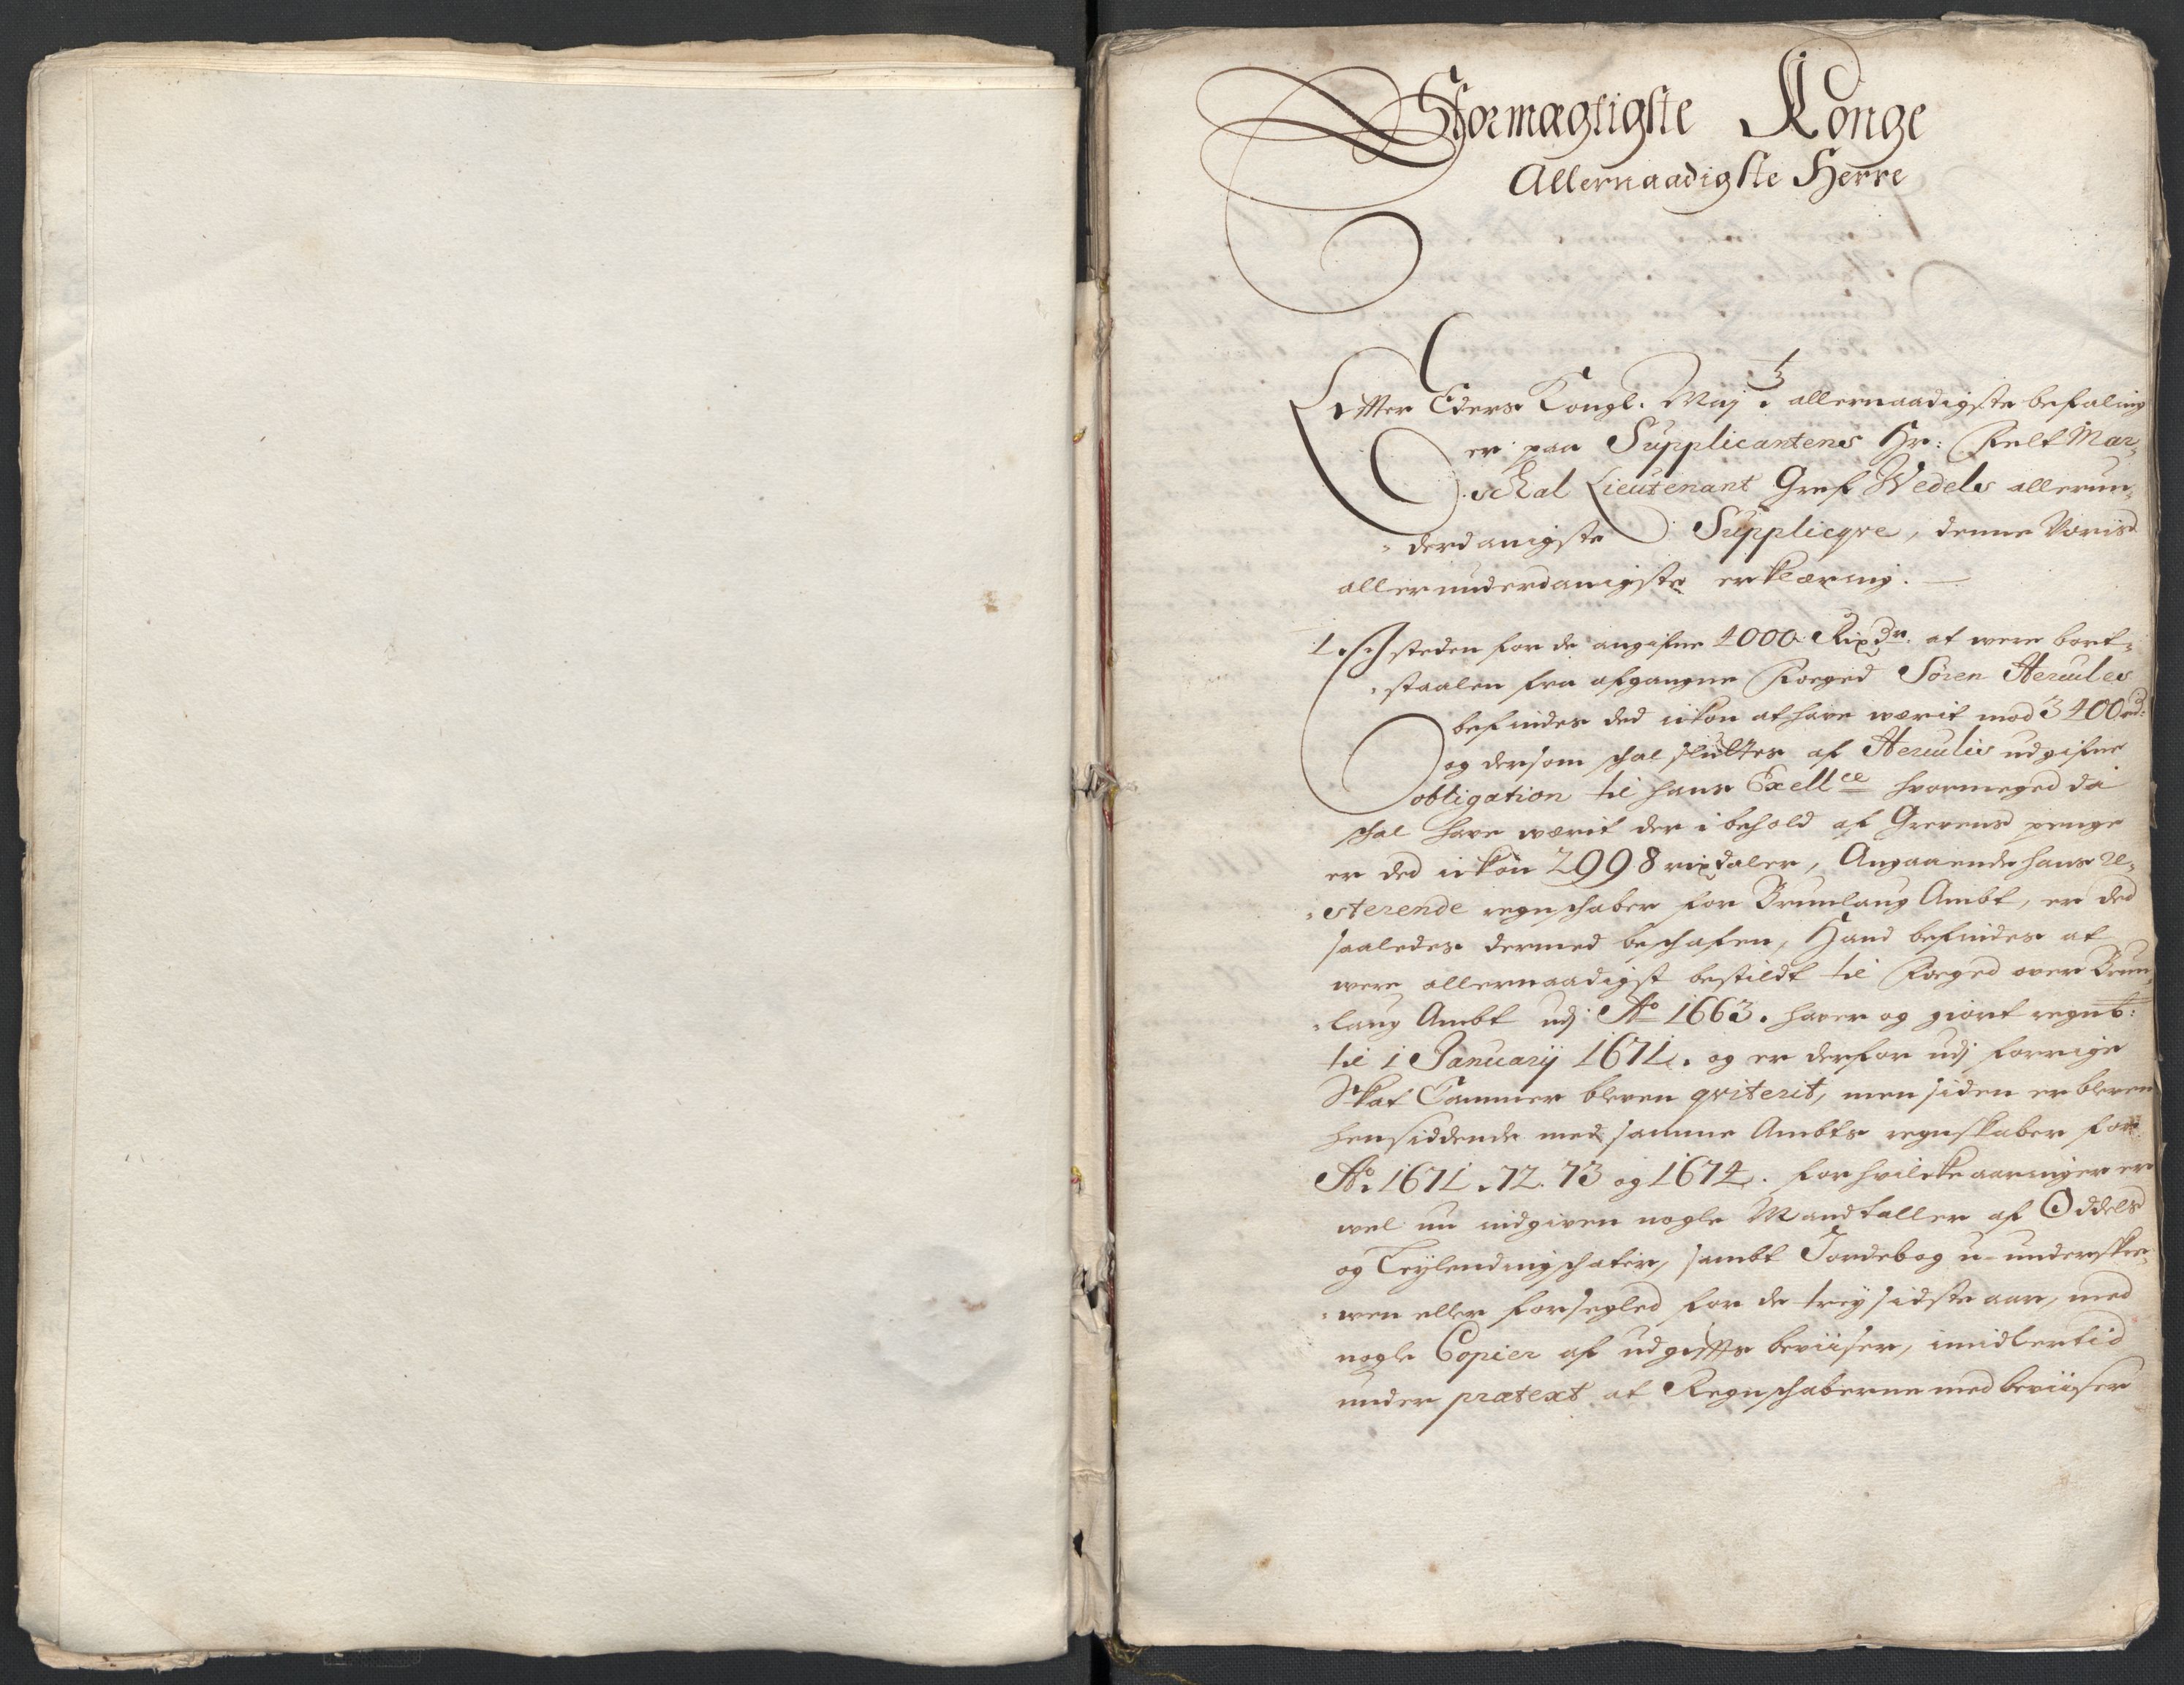 Stormægtigste Konge
Allernaadigste Herre
Effter Eders Kongl. Maj.ts allernaadigste befaling
er paa Supplicantens Hr: Felt Mar„
„schal Lieutenant Gref Wedels allerun„
„derdanigste Supplicqve, denne Voris
allerunderdanigste erklæring.
1. I steden for de angifne 4000 Rixdr. at were bort„
„staalen fra afgangne Foeged Sören Hercules
befindes ded ickon at hawe wærit mod 3400 rd:
og dersom skal sluttes af Herculis udgifne
obligation til hans Exellce hvormeged da
skal hawe wærit der i behold af Grevens penge
er ded ickon 2998 rixdaler, Angaaende hans re„
„sterende regnskaber for Brunlaug Ambt, er ded
saaledes dermed beskafen, Hand befindes at
were allernaadigst bestildt til Foeged ower Brun„
„laug Ambt udj Ao 1663. hawer og giort regnsk:
til 1 Januarij 1671. og er derfor udj forrige
Skat Cammer blewen qviterit, men siden er blewen
hensiddende med samme Ambts regnskaber for
Ao. 1671. 72. 73 og 1674. for hvilcke aaringer er
wel nu indgiven nogle Mandtaller af Oddels
og Leylendings skatter, sambt Jordebog u-underskre„
„wen eller forsegled for de trey sidste aar, med
nogle Copier af udgiffts beviiser, imidlertid
under prætext at Regnskaberne med beviiser